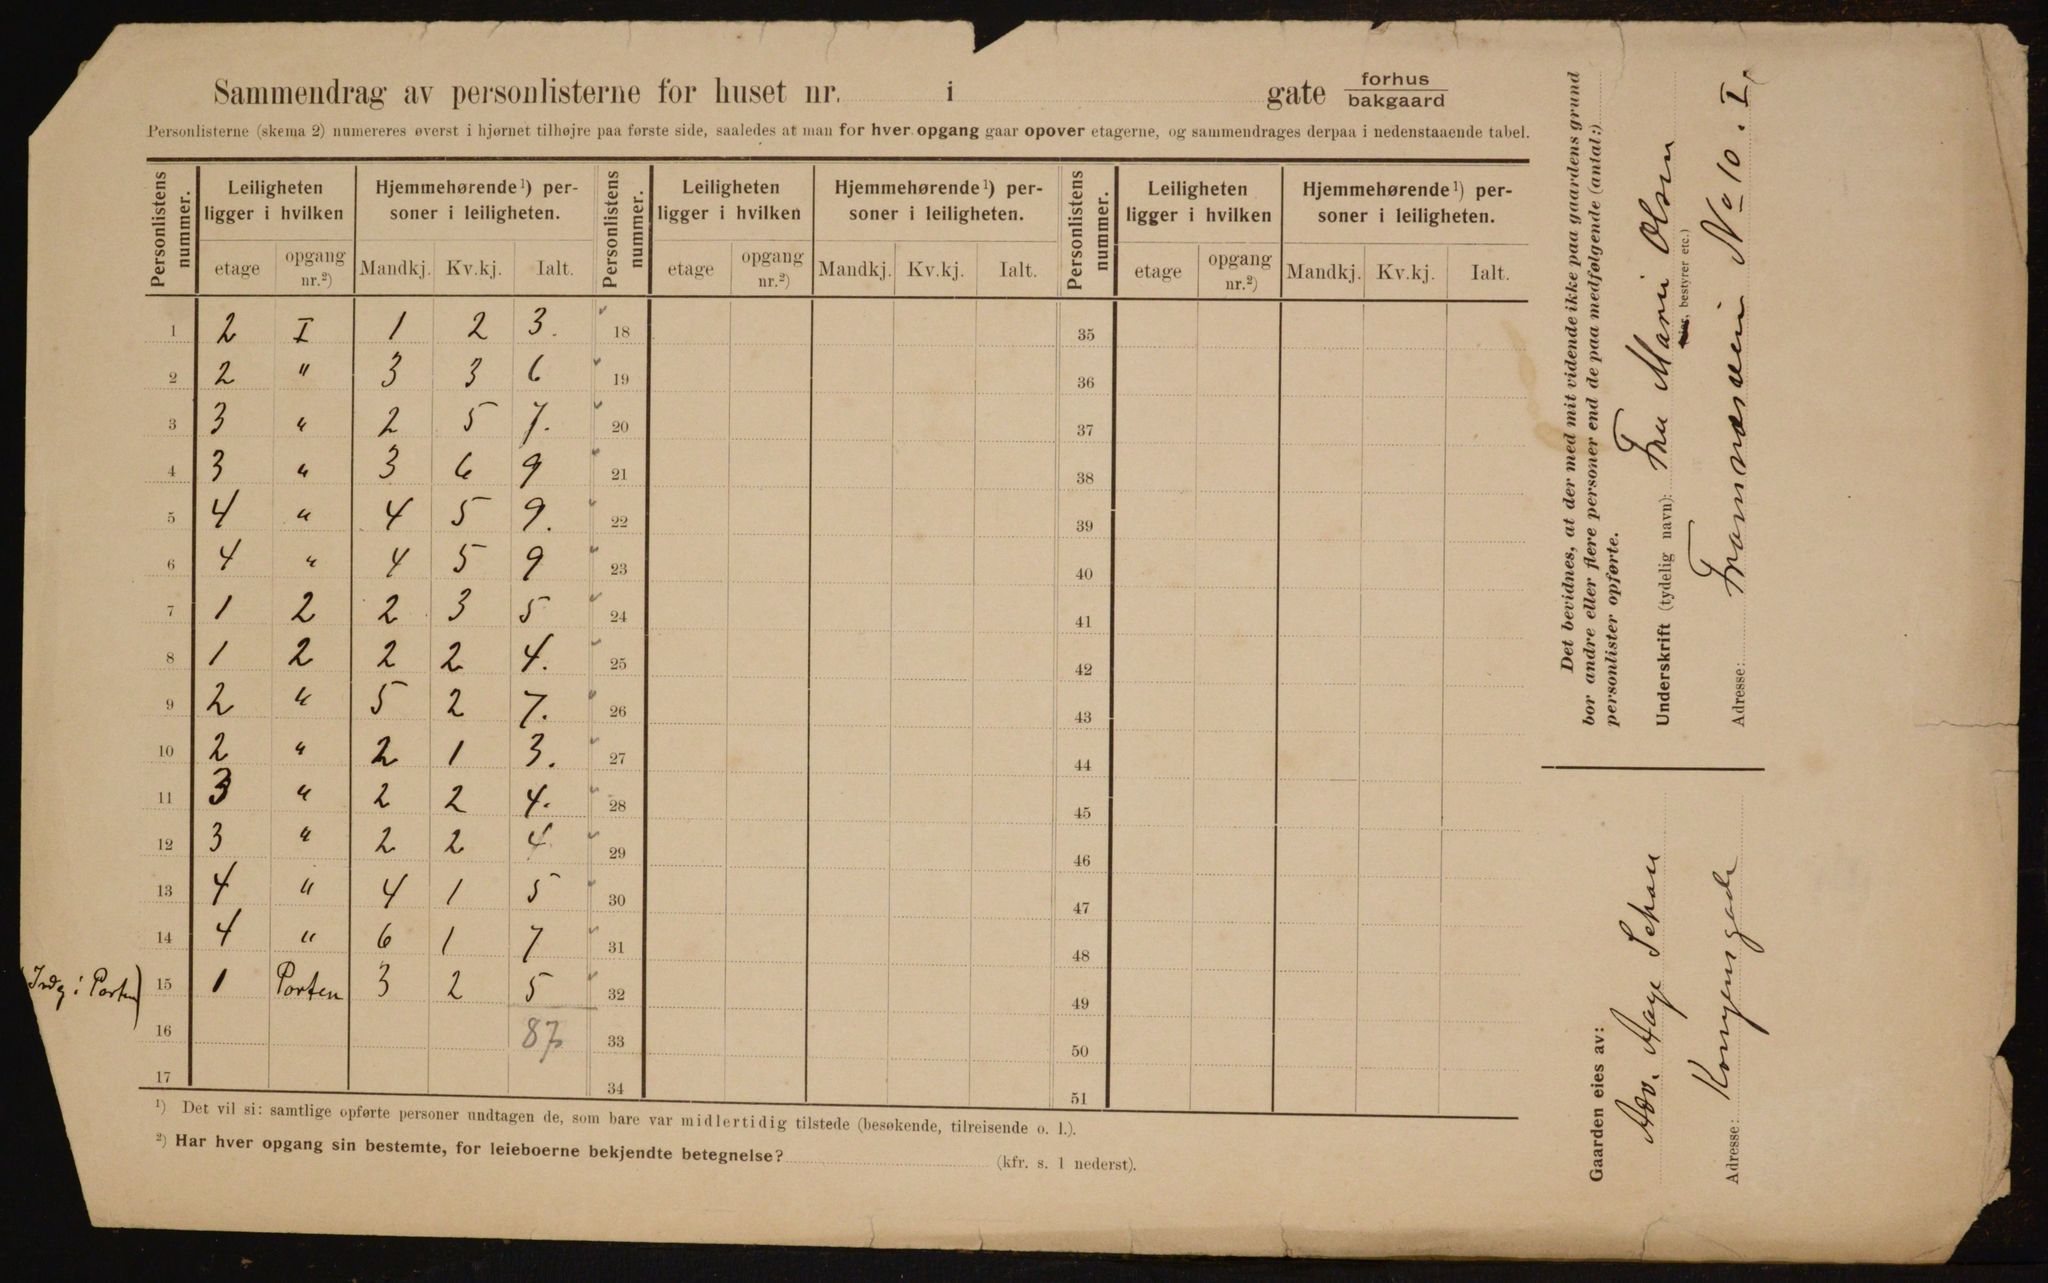 Sammendrag av personlisterne for huset nr. i gate forhus bakgaard
Personlisterne (skema 2) numereres øverst i hjørnet tilhøjre paa første side, saaledes at man for hver opgang gaar opover etagerne, og sammendrages derpaa i nedenstaaende tabel.
Personlistens nummer. Leiligheten ligger i hvilken Hjemmehørende¹) personer i leiligheten. Personlistens nummer. Leiligheten ligger i hvilken Hjemmehørende¹) personer i leiligheten. Personlistens nummer. Leiligheten ligger i hvilken Hjemmehørende¹) personer i leiligheten.
etage opgang nr.²) Mandkj. Kv.kj. Ialt. etage opgang nr.²) Mandkj. Kv.kj. Ialt. etage opgang nr.²) Mandkj. Kv.kj. Ialt.
1 2 I 1 2 3. 18 35
2 2 " 3 3 6 19 36
3 3 " 2 5 7. 20 37
4 3 " 3 6 9 21 38
5 4 " 4 5 9. 22 39
6 4 " 4 5 9 23 40
7 1 2 2 3 5 24 41
8 1 2 2 2 4. 25 42
9 2 " 5 2 7. 26 43
10 2 " 2 1 3. 27 44
11 3 " 2 2 4. 28 45
12 3 " 2 2 4 29 46
13 4 " 4 1 5 30 47
14 4 " 6 1 7 31 48
(Indg i Porten) 15 1 Porten 3 2 5 32 49
16 87 33 50
17 34 51
¹) Det vil si: samtlige opførte personer undtagen de, som bare var midlertidig tilstede (besøkende, tilreisende o. l.).
²) Har hver opgang sin bestemte, for leieboerne bekjendte betegnelse? (kfr. s. 1 nederst).
Det bevidnes, at der med mit vidende ikke paa gaardens grund
bor andre eller flere personer end de paa medfølgende (antal:)
personlister opførte.
Underskrift (tydelig navn): Fru Marie Olsen
bestyrer etc.)
Adresse: Frognerveien No 10. I
Gaarden eies av:
Adv. Aage Schou
Adresse: Kongensgade